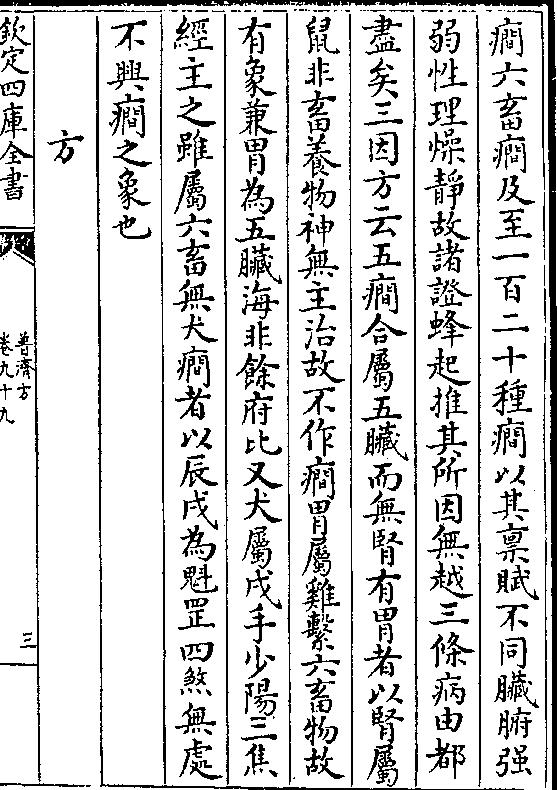 癎六畜癎及至一百二十種癎以其禀賦不同臟腑强
弱性理燥靜故諸證蜂起推其所因無越三條病由都
盡矣三因方云五癎合屬五臟而無腎有胃者以腎屬
鼠非畜養物神無主治故不作癎胃屬雞繫六畜物故
有象兼胃為五臟海非餘府比又犬屬戌手少陽三焦
經主之雖屬六畜無犬癎者以辰戌為魁罡四煞無處
不興癎之象也
方
欽定四庫全書
普濟方
卷九十九
三